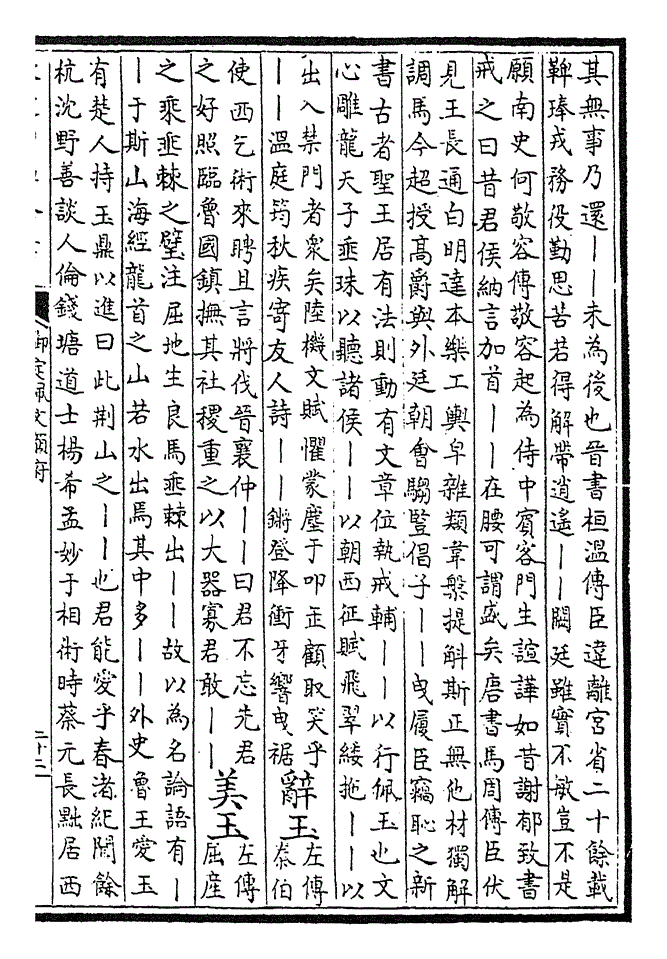 其無事乃還丨丨未為後也晉書桓溫傳臣違離宮省二十餘載
鞞琫戎務役勤思苦若得解帶逍遙丨丨闕廷雖實不敏豈不是
願南史何敬容傳敬容起為侍中賓客門生諠譁如昔謝郁致書
戒之曰昔君侯納言加首丨丨在腰可謂盛矣唐書馬周傳臣伏
見王長通白明達本樂工輿皁雜類韋槃提斛斯正無他材獨解
調馬今超授高爵與外廷朝會騶豎倡子丨丨曳履臣竊恥之新
書古者聖王居有法則動有文章位執戒輔丨丨以行佩玉也文
心雕龍天子垂珠以聽諸侯丨丨以朝西征賦飛翠緌拖丨丨以
出入禁門者衆矣陸機文賦懼蒙塵于叩缶顧取笑乎
丨丨溫庭筠秋疾寄友人詩丨丨鏘登降衝牙響曳裾
辭玉
左傳
秦伯
使西乞術來聘且言將伐晉襄仲丨丨曰君不忘先君
之好照臨魯國鎮撫其社稷重之以大器寡君敢丨丨
美玉
左傳
屈產
之乘垂棘之璧注屈地生良馬垂棘出丨丨故以為名論語有丨
丨于斯山海經龍首之山若水出焉其中多丨丨外史魯王愛玉
有楚人持玉鼎以進曰此荆山之丨丨也君能愛乎春渚紀聞餘
杭沈野善談人倫錢塘道士楊希孟妙于相術時蔡元長點居西
御定佩文韻府
二十二